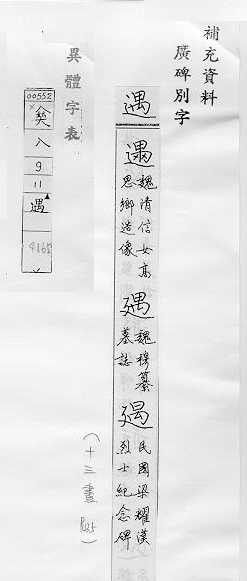 補充資料
廣碑別字
遇
遇
魏隋信女高
思鄉造像
遇
魏穆纂
墓誌
遇
民國梁耀漢
烈士紀念碑
(十三畫 P.425)
異體字表
00552
入
9
11
遇